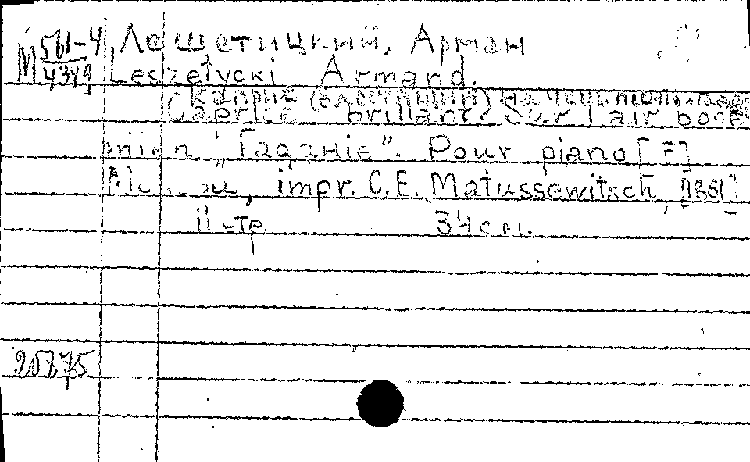 М 561-4
4349
Лешетицкий, Арман
Leszetycki Armand.
Каприс (блестящий) на
Caprice brillant. Sur l'air bohé-
mien „Гаданіе". Pour piano [7]
impr. C.E. Matussewitsch, [1851]
11 стр 34 см.
20875